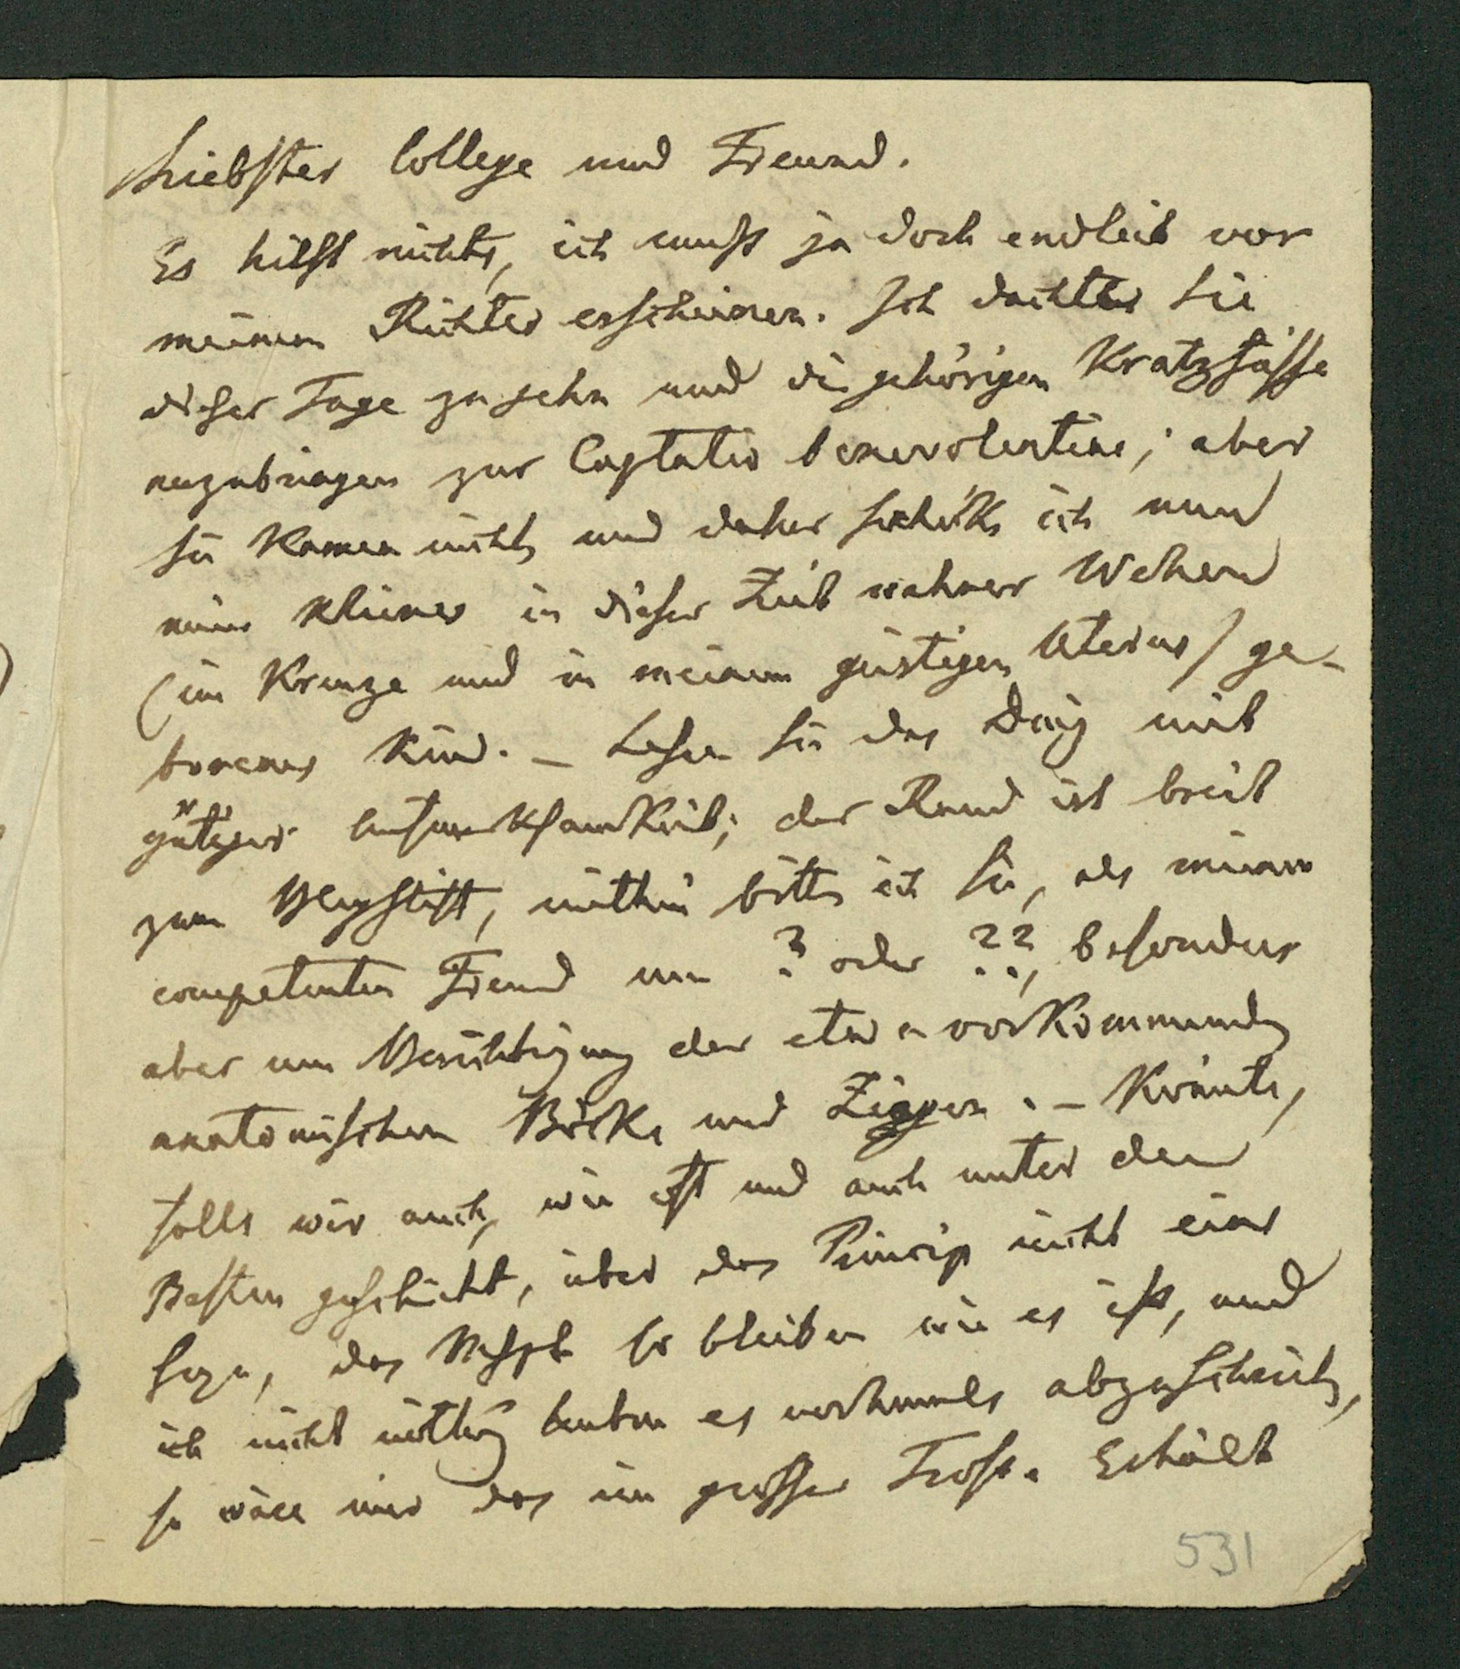 Liebster College und Freund.
Es hilft nichts, ich muß ja doch endlich vor
meinem Richter erscheinen. Ich dachte Sie
dieser Tage zu sehn und die gehörigen Kratzfüsse
anzubringen zur Captatio benevolentiae; aber
Sie kamen nicht, und daher schicke ich nun
mein kleines in dieser Zeit wahrer Wehen
(im Kreuze und in meinem geistigen Uterus) ge-
borenes Kind. – Lesen Sie das Ding mit
gütiger Aufmerksamkeit; der Rand ist breit
zum Bleystift, mithin bitte ich Sie, als meinen
competenten Freund um ? oder ??, besonders
aber um Berichtigung der etwa vorkommenden
anatomischen Böcke und Ziegen. – Könnte,
falls wir auch, wie oft und auch unter den
Besten geschieht, über das Princip nicht eins
seyn, das Mspt so bleiben wie es ist, und
ich nicht nöthig haben es nochmals abzuschreiben,
so wäre mir das ein grosser Trost. Erhält
531